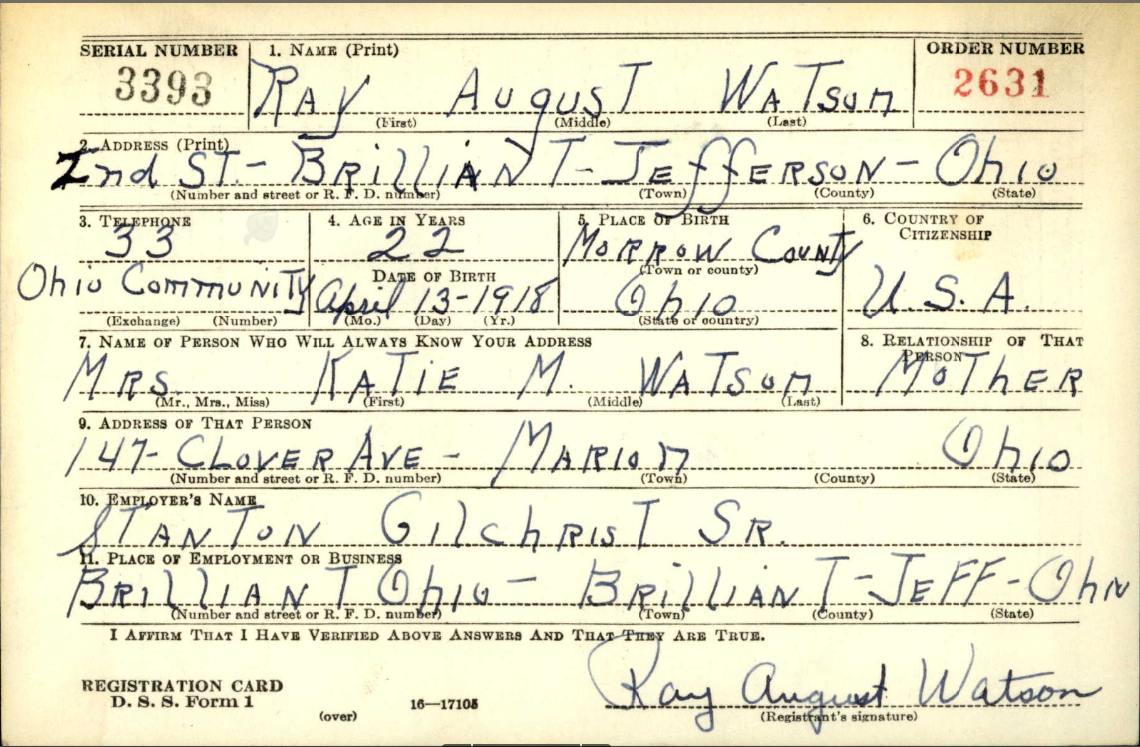 SERIAL NUMBER 1. NAME (Print) ORDER NUMBER
3393 RAY AUGUST WATSON 2631
(First) (Middle) (Last)
2. ADDRESS (Print)
2nd ST. - BRILLIANT - JEFFERSON - OHIO
(Number and street or R. F. D. number) (Town) (County) (State)
3. TELEPHONE 4. AGE IN YEARS 5. PLACE OF BIRTH 6. COUNTRY OF CITIZENSHIP
33 22 MORROW COUNTY
DATE OF BIRTH (Town or county)
Ohio Community April 13-1918 OHIO U.S.A.
(Exchange) (Number) (Mo.) (Day) (Yr.) (State or country)
7. NAME OF PERSON WHO WILL ALWAYS KNOW YOUR ADDRESS 8. RELATIONSHIP OF THAT PERSON
MRS. KATIE M. WATSON MOTHER
(Mr., Mrs., Miss) (First) (Middle) (Last)
9. ADDRESS OF THAT PERSON
147- CLOVER AVE - MARION OHIO
(Number and street or R. F. D. number) (Town) (County) (State)
10. EMPLOYER'S NAME
STANTON GILCHRIST SR.
11. PLACE OF EMPLOYMENT OR BUSINESS
BRILLIANT OHIO - BRILLIANT - JEFF - OHIO
(Number and street or R. F. D. number) (Town) (County) (State)
I AFFIRM THAT I HAVE VERIFIED ABOVE ANSWERS AND THAT THEY ARE TRUE.
REGISTRATION CARD
D. S. S. Form 1 16—17105 Ray August Watson
(over) (Registrant's signature)